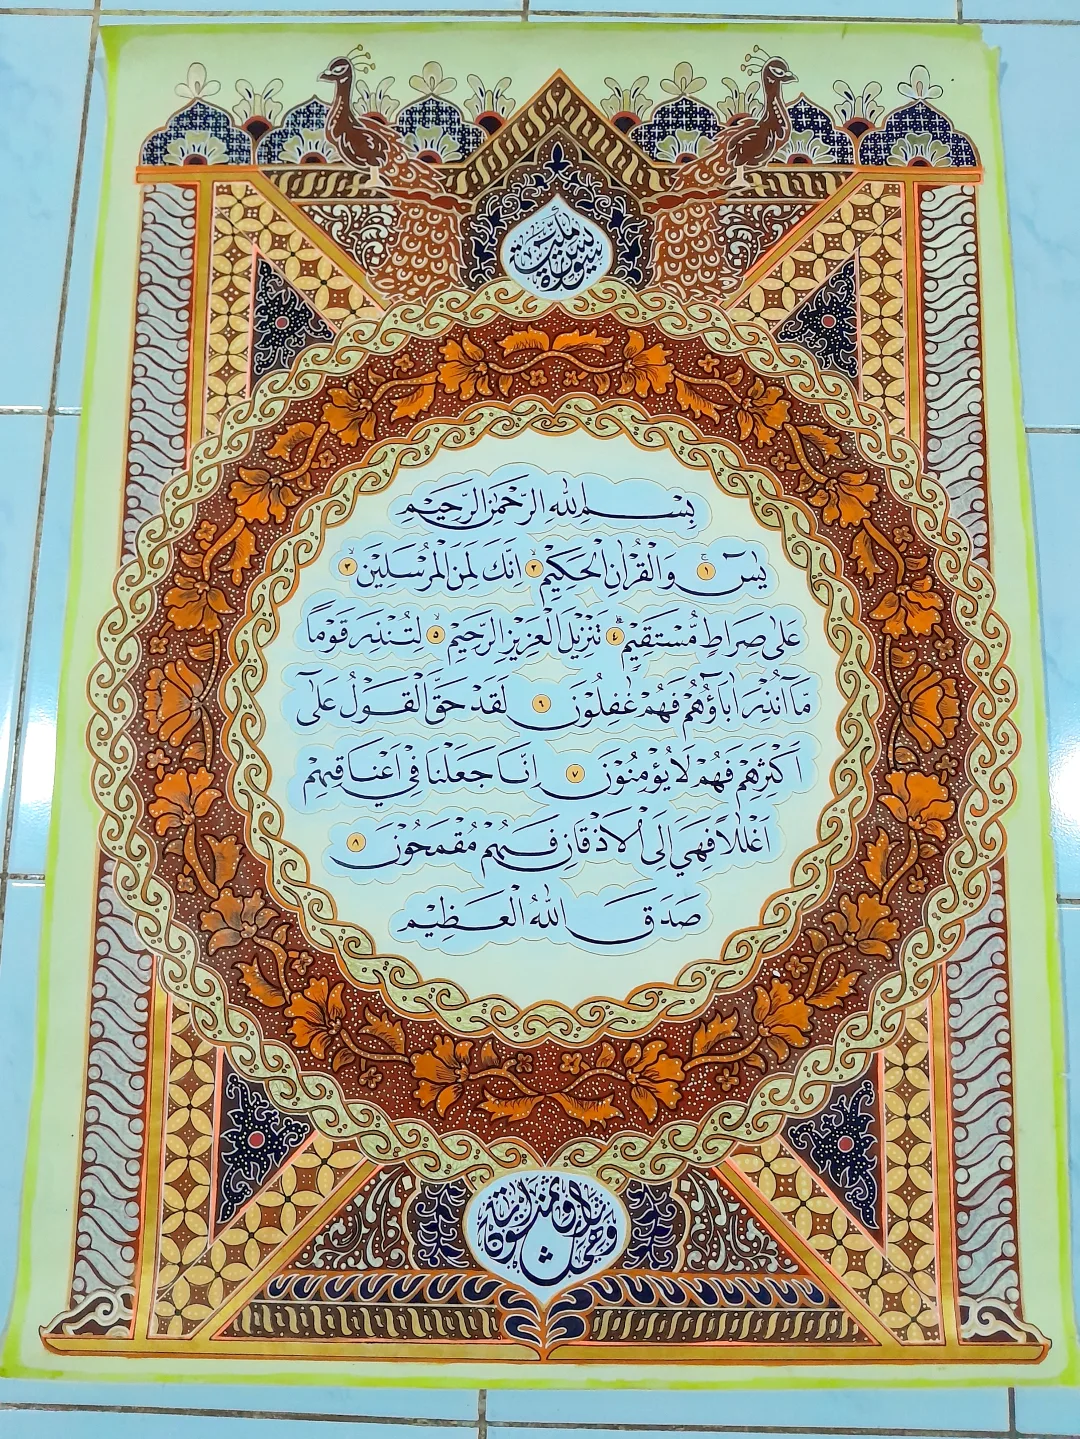 سورة يس مكية
بِسْمِ اللهِ الرَّحْمٰنِ الرَّحِيْمِ
يٰسۤ ١ وَالْقُرْاٰنِ الْحَكِيْمِ ٢ اِنَّكَ لَمِنَ الْمُرْسَلِيْنَ ٣
عَلٰى صِرَاطٍ مُّسْتَقِيْمٍ ٤ تَنْزِيْلَ الْعَزِيْزِ الرَّحِيْمِ ٥ لِتُنْذِرَ قَوْمًا
مَّآ اُنْذِرَ اٰبَاۤؤُهُمْ فَهُمْ غٰفِلُوْنَ ٦ لَقَدْ حَقَّ الْقَوْلُ عَلٰٓى
اَكْثَرِهِمْ فَهُمْ لَا يُؤْمِنُوْنَ ٧ اِنَّا جَعَلْنَا فِيْٓ اَعْنَاقِهِمْ
اَغْلٰلًا فَهِيَ اِلَى الْاَذْقَانِ فَهُمْ مُّقْمَحُوْنَ ٨
صَدَقَ اللهُ الْعَظِيْمُ
وهي ثلاث وثمانون